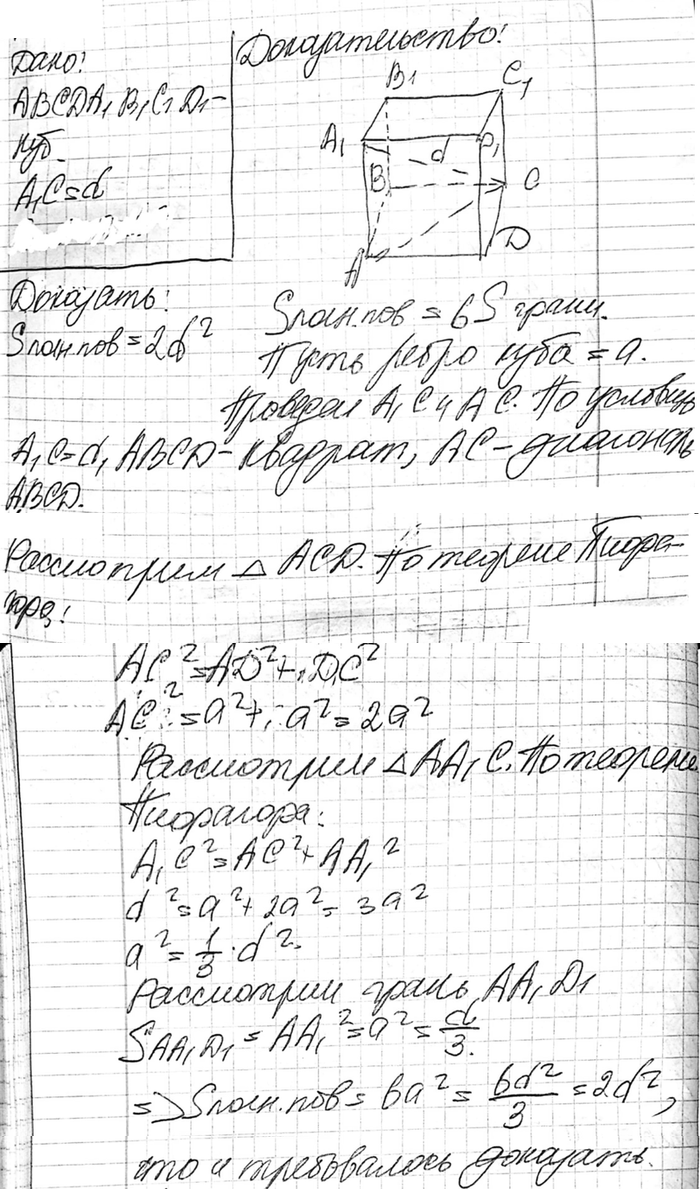 Дано:
ABCDA₁B₁C₁D₁ –
куб
A₁C = d
Доказательство:
B₁
C₁
A₁
D₁
d
B
C
A
D
Доказать:
Sполн.пов = 2d²
Sполн.пов = 6 S грани.
Пусть ребро куба = a.
Проведем A₁C и AC. По условию
A₁C = d, ABCD – квадрат, AC – диагональ
ABCD.
Рассмотрим △ ACD. По теореме Пифа-
гора:
AC² = AD² + DC²
AC² = a² + a² = 2a²
Рассмотрим △ AA₁C. По теореме
Пифагора:
A₁C² = AC² + AA₁²
d² = a² + 2a² = 3a²
a² = 1/3 · d².
Рассмотрим грань AA₁D₁
SAA₁D₁ = AA₁² = a² = d/3.
=> Sполн.пов = 6a² = 6d²/3 = 2d²,
что и требовалось доказать.